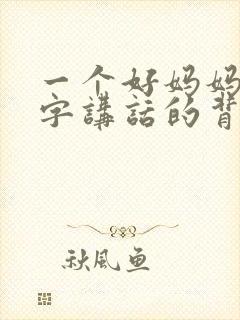 一个好妈妈
字講話的背
秋風魚